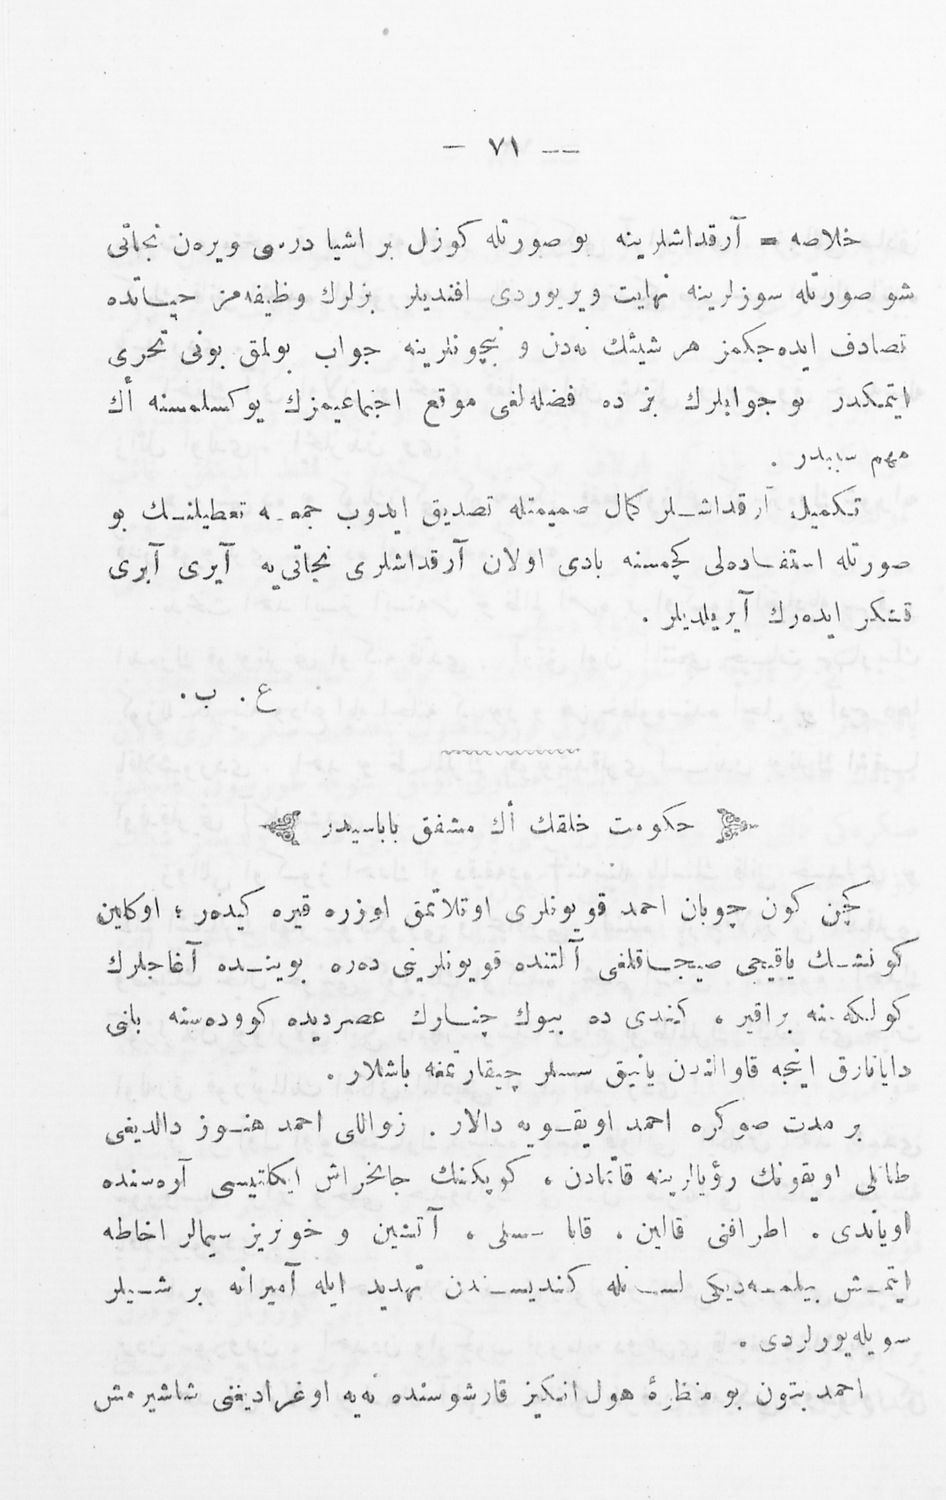 — ٧١ —
خلاصه = آرقداشلرینه بو صورتله كوزل بر اشیا درسی ویرەن نجاتی
شو صورتله سوزلرینه نهایت ویریوردی افندیلر بزلرك وظیفه‌مز حیـاتده
تصادف ایده‌جكمز هر شیئك نه‌دن و نیچونلرینه جواب بولمق بونی تحری
ایتمكدر بو جوابلرك بز ده فضله‌لغی موقع اجتماعیمزك یوكسلمسنه أك
مهم سببدر .
تـكمیل آرقداشـلر كمال صمیمتله تصدیق ایدوب جمعـه تعطیلنـك بو
صورتله استفـاده‌لی كچمسنه بادی اولان آرقداشلری نجاتی‌یه آیری آیری
تشكر ایده‌رك آیریلدیلر .
ع . ب .
حكومت خلقك أك مشفق باباسیدر
كچن كون چوبان احمد قویونلری اوتلاتمق اوزره قیره كیده‌ر ؛ اوكلین
كونشـك یاقیجی صیجـاقلغی آلتنده قویونلرینی ده‌ره بوینـده آغاجلرك
كولـكه‌سنه براقیر ، كندی ده بیوك چنـارك عصردیده كووده‌سنه یانی
دایانارق اینجه قاوالندن یانیق سسلر چیقارتمغه باشلار .
بر مدت صوكره احمد اویقـویه دالار . زواللی احمد هنـوز دالدیغی
طاتلی اویقونك رؤیالرینه قانمادن ، كوپكنك جانخراش ایكلتیسی آره‌سنده
اویاندی . اطرافنی قالین ، قابا سسلی ، آتشین و خونریز سیمالر احاطه
ایتمـش بیلمـه‌دیكی لسـانله كندیسـندن تهدید ایله آمیرانه بر شـیلر
سویله‌یورلردی .
احمد بتون بو منظرۀ هول انكیز قارشوسنده نه‌یه اوغرادیغنی شاشیرمش